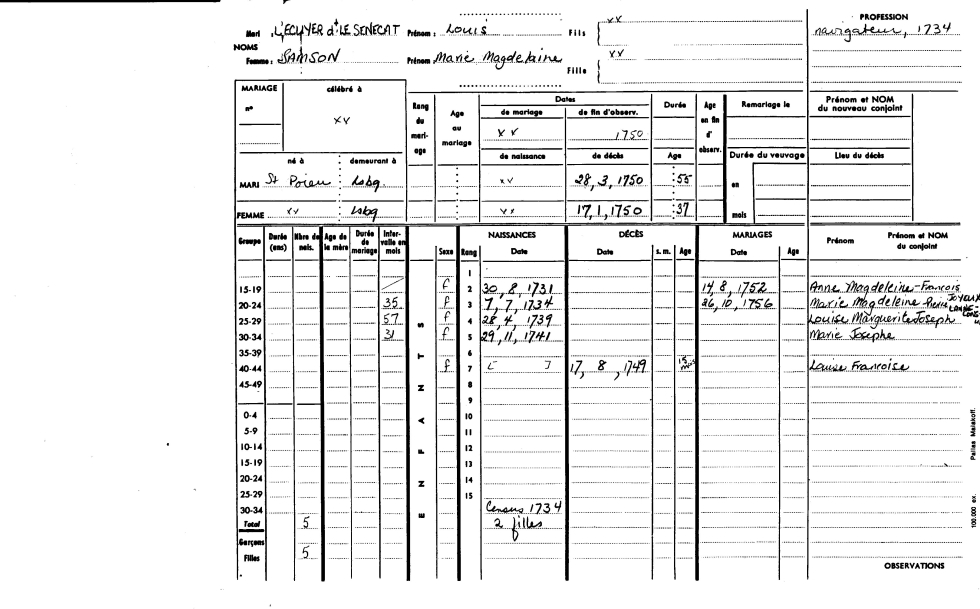 Mari : L'ÉCUYER dt LE SENECAT Prénom : Louis Fils xx PROFESSION
navigateur, 1734
NOMS
Femme : SAMSON Prénom : Marie Magdelaine Fille xx
MARIAGE célébré à
n°
xx
Rang du mari-age
Age au mariage
Dates
de mariage de fin d'observ.
xx 1750
de naissance de décès
Durée
Age
Age en fin d'observ.
Remariage le
Prénom et NOM du nouveau conjoint
Durée du veuvage
Lieu du décès
né à demeurant à
MARI St Poieu Lsbg. xx 28, 3, 1750 55 en
FEMME xx Lsbg xx 17, 1, 1750 37 mois
Groupe Durée (ans) Nbre de nais. Age de la mère Durée de mariage Inter-valle en mois
ENFANTS
Sexe Rang NAISSANCES Date DÉCÈS Date s. m. Age MARIAGES Date Age Prénom Prénom et NOM du conjoint
1
15-19 f 2 30, 8, 1731 14, 8, 1752 Anne Magdeleine - Francois
20-24 35 f 3 7, 7, 1734 26, 10, 1756 Marie Magdeleine Pierre
25-29 57 f 4 28, 4, 1739 Louise Marguerite Joseph
30-34 31 f 5 29, 11, 1741 Marie Josephe
35-39 6
40-44 f 7 [ ] 17, 8, 1749 Louise Francoise
45-49 8
9
0-4 10
5-9 11
10-14 12
15-19 13
20-24 14
25-29 15
30-34 Census 1734
Total 5 2 filles
Garçons
Filles 5
OBSERVATIONS
Pallas Malakoff.
100.000 ex.